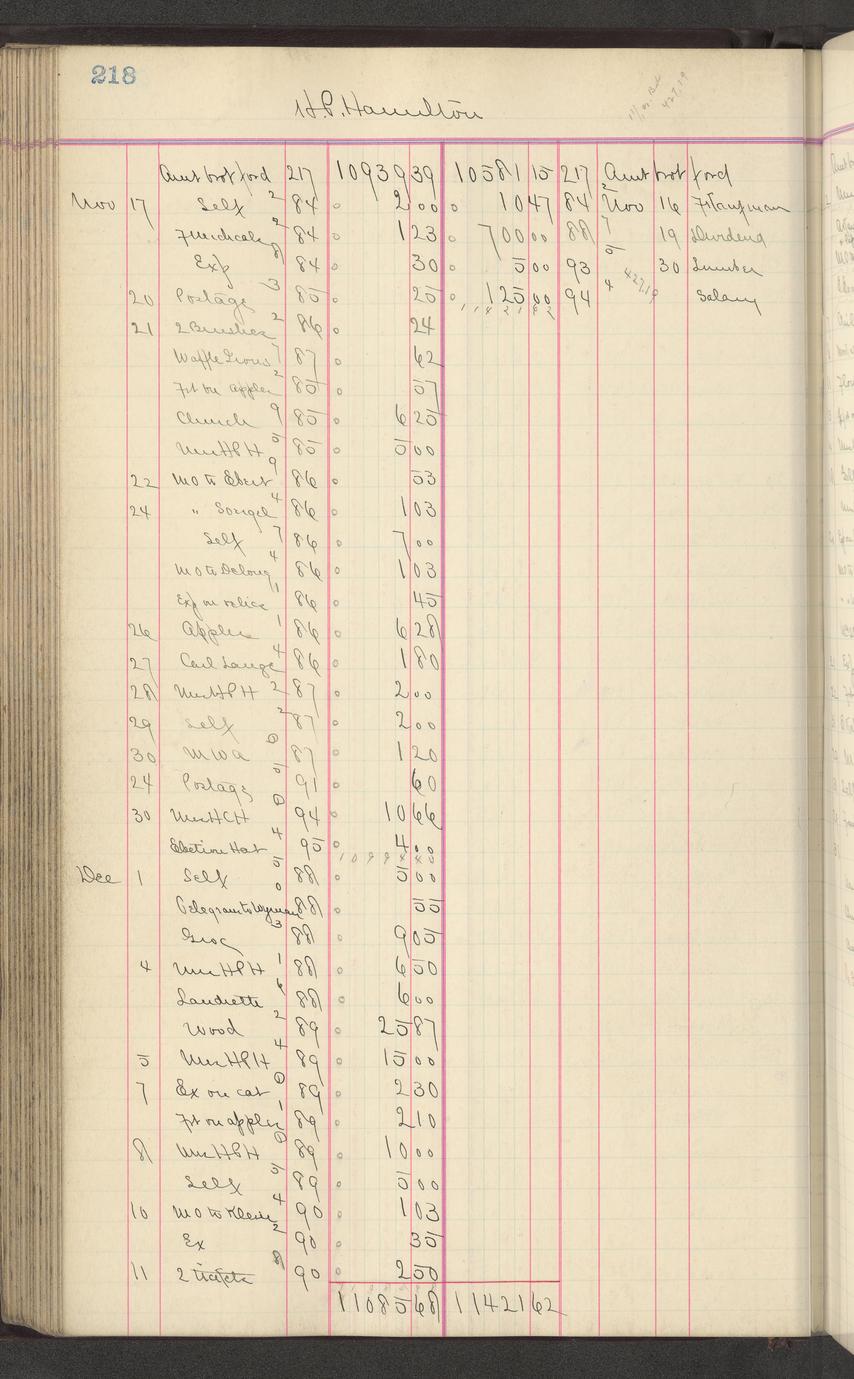 218
H.P. Hamilton
427.19
Amt brot ford 217 10939 39 10581 15 217 Amt brot ford
Nov 17 Self 2 84 2 00 10 47 84 2 Nov 16
84 1 23 700 00 88 7 19 Dividend
Exp 8 84 30 5 00 93 5 30 Lumber
20 Postage 3 85 25 125 00 94 4 427.19 Salary
11421 62
21 2 Brushes 2 86 24
Waffle Irons 7 87 62
Frt on apples 2 85 57
Church 9 85 6 25
Mrs HPH 5 85 5 00
22 MO to Ebert 9 86 53
24 " 4 86 1 03
Self 7 86 7 00
MO to DeLong 4 86 1 03
Exp on valice 1 86 45
26 Apples 1 86 6 28
27 Carl Lange 4 86 1 80
28 Mrs HPH 2 87 2 00
29 Self 2 87 2 00
30 MWA 0 87 1 20
24 Postage 5 91 60
30 Mrs HCH 0 94 10 66
Election Hat 4 95 4 00
Dec 1 Self 5 88 5 00
Telegram to Wyman 0 88 55
Groc 3 88 9 05
4 Mrs HPH 1 88 6 50
Laudrette 6 88 6 00
Wood 2 89 25 87
5 Mrs HPH 4 89 15 00
7 Ex on cat 0 89 2 30
Frt on apples 1 89 2 10
8 Mrs HPH 0 89 10 00
Self 5 89 5 00
10 MO to Klein 4 90 1 03
Ex 2 90 35
11 2 8 90 2 50
11085 68 11421 62